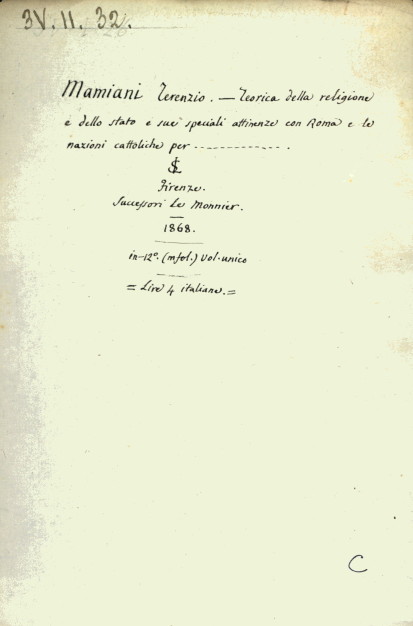 3V. 11. 32.
Mamiani Terenzio. — Teorica della religione
e dello stato e sue speciali attinenze con Roma e le
nazioni cattoliche per - - - - - - - - - - - - - .
Firenze.
Successori Le Monnier.
1868.
in-12º. (mfol.) Vol. unico
= Lire 4 italiane. =
C